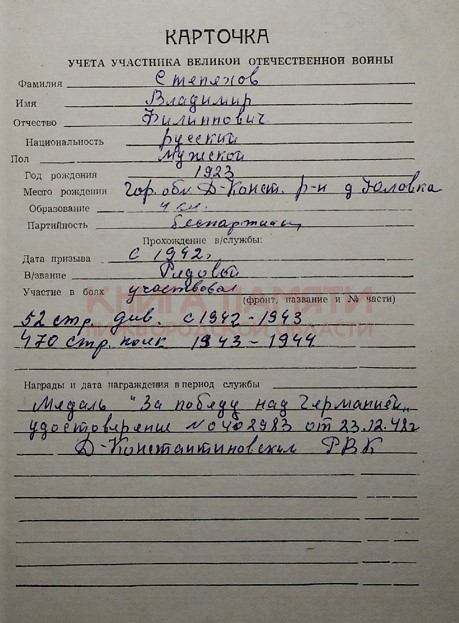 КАРТОЧКА
УЧЕТА УЧАСТНИКА ВЕЛИКОЙ ОТЕЧЕСТВЕННОЙ ВОЙНЫ
Фамилия Степанов
Имя Владимир
Отчество Филиппович
Национальность русский
Пол мужской
Год рождения 1923
Место рождения Гор. обл. Д-Конст. р-н д
Образование 4 кл.
Партийность беспартийн
Прохождение в/службы:
Дата призыва с 1942 г.
В/звание Рядовый
Участие в боях участвовал
(фронт, название и № части)
КНИГА ПАМЯТИ
НИЖЕГОРОДСКОЙ ОБЛАСТИ
52 стр. див. с 1942-1943
470 стр. полк 1943-1944
Награды и дата награждения в период службы
Медаль "За победу над Германией"
удостоверение № 0402983 от 23.12.48г
Д-Константиновским РВК